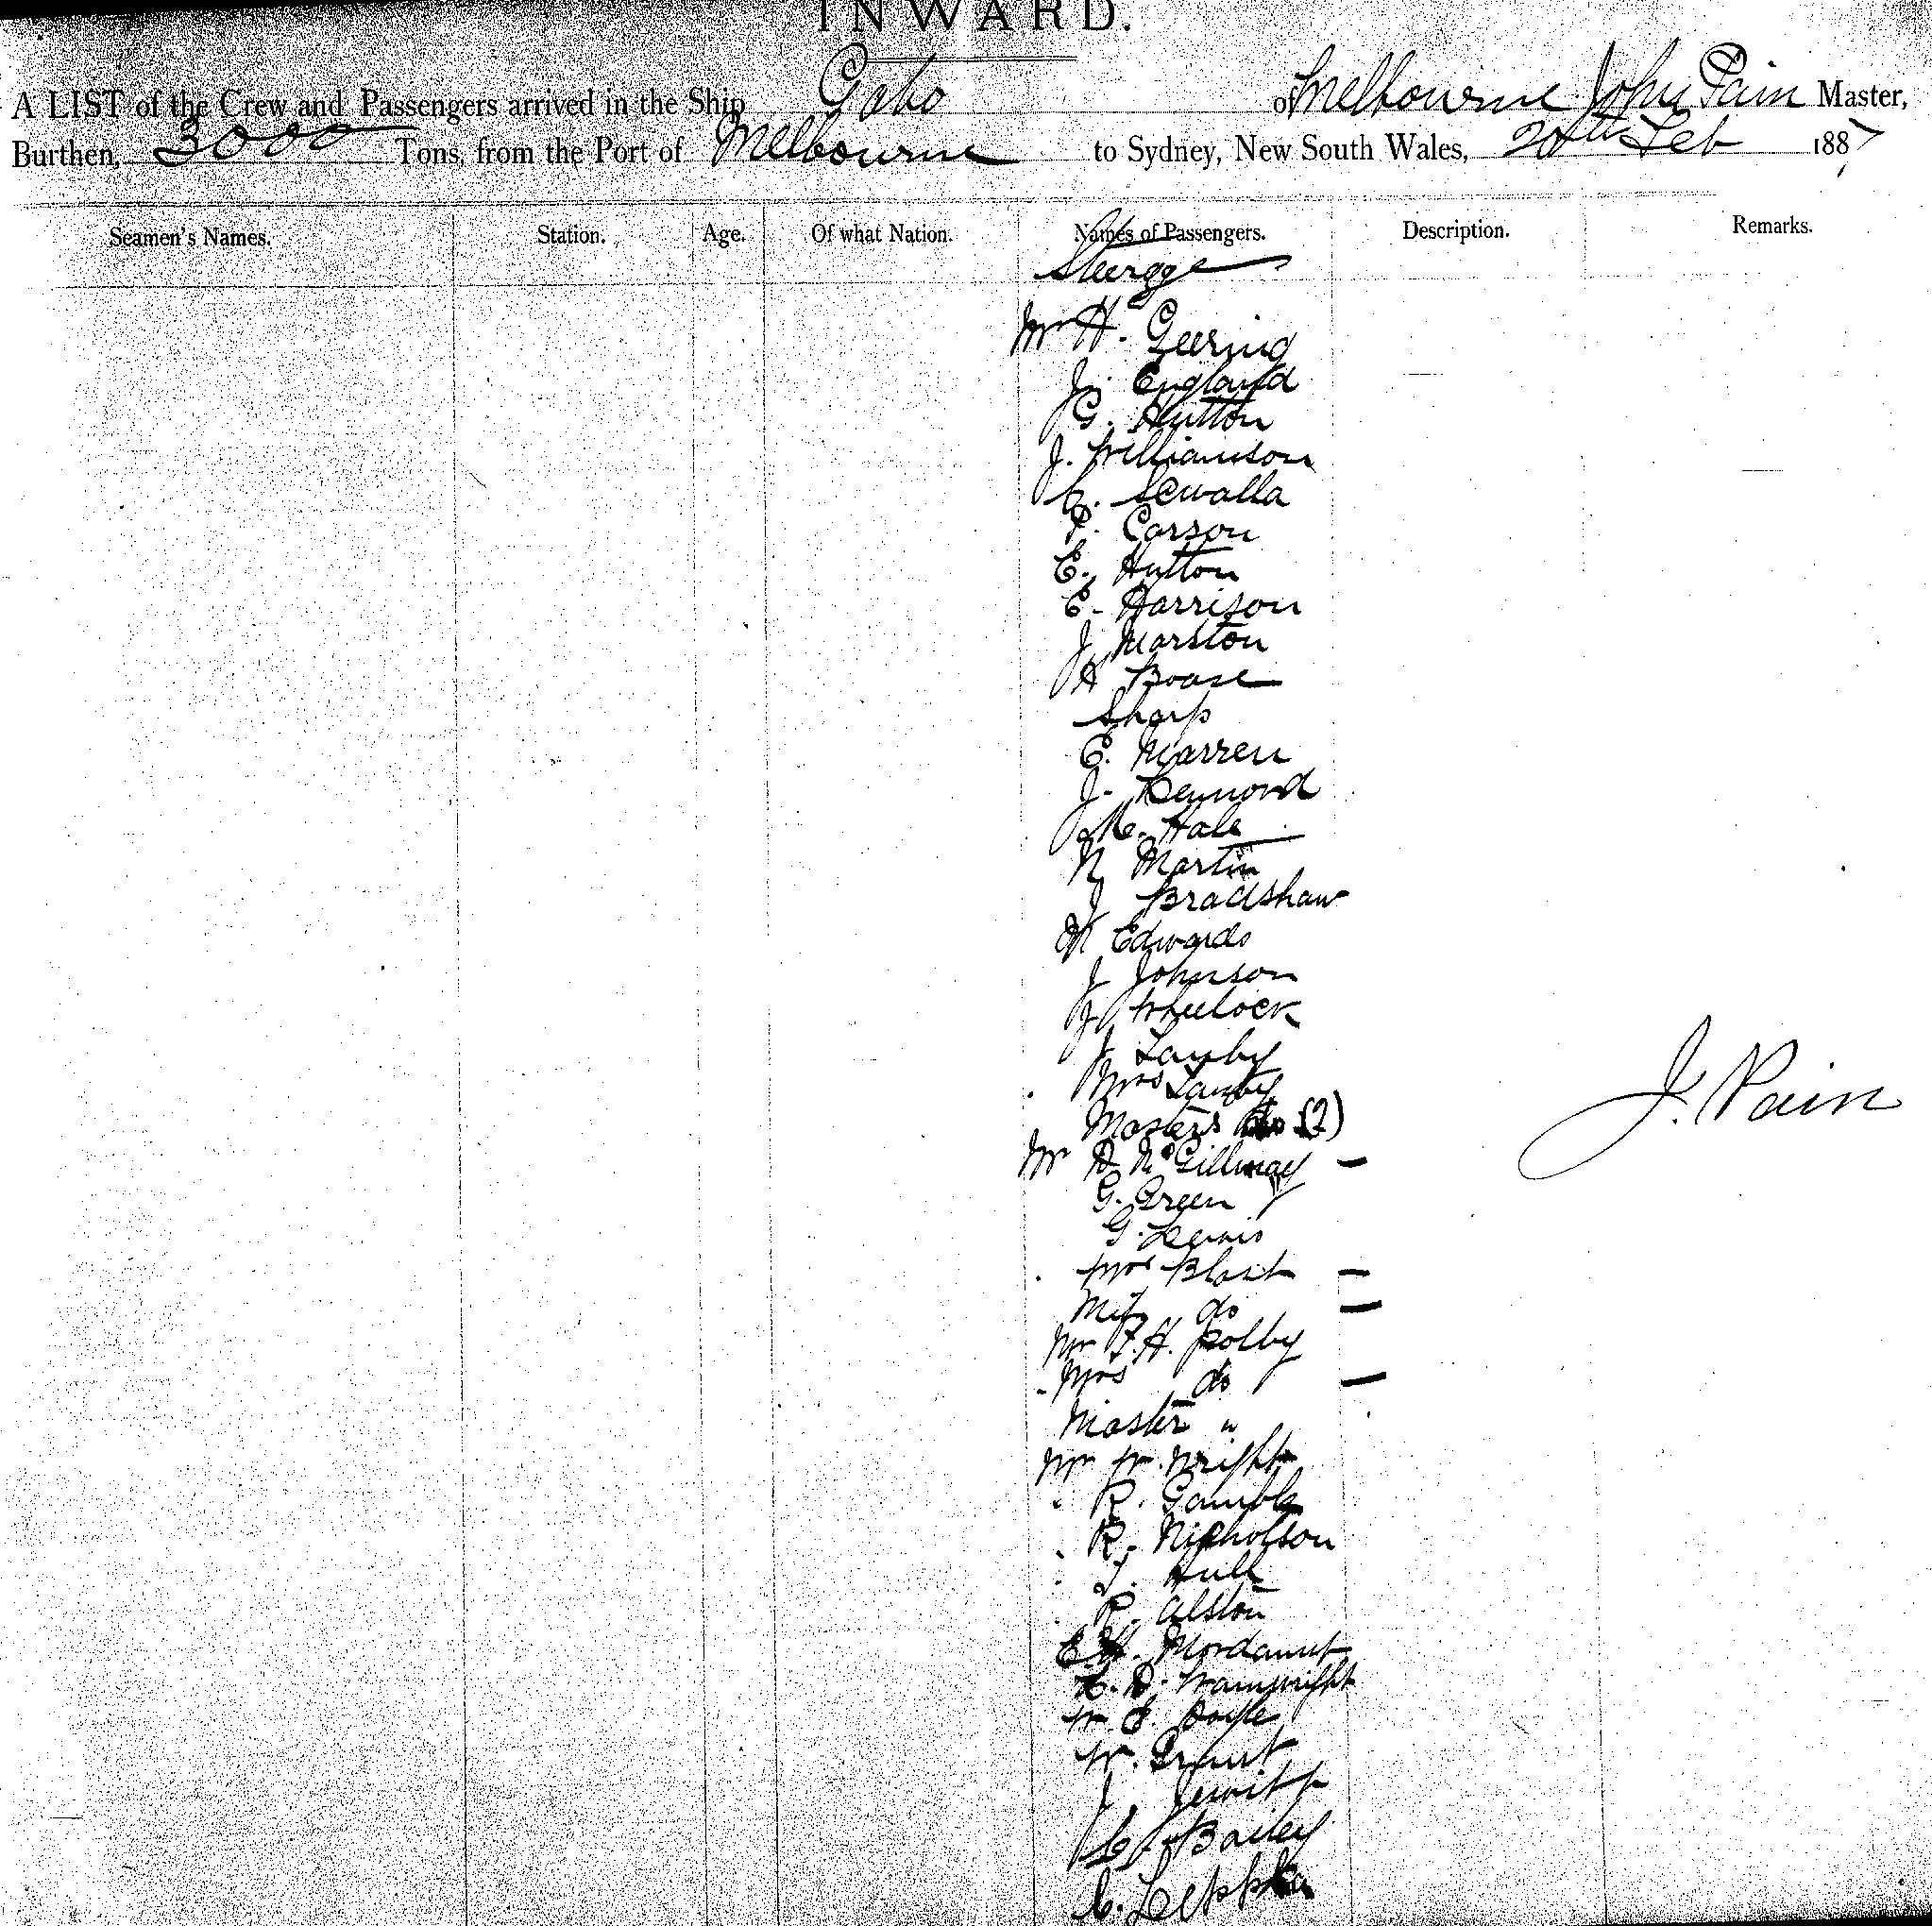 INWARD.
A LIST of the Crew and Passengers arrived in the Ship Gabo of Melbourne John Pain Master,
Burthen, 3000 Tons, from the Port of Melbourne to Sydney, New South Wales, Feb 1887
Seamen's Names. Station. Age. Of what Nation. Names of Passengers. Description. Remarks.
Steerage
Mr H. Geering
J. England
G. Hutton
J. Williamson
C. Sewalla
P. Carson
E. Hutton
E. Harrison
J Marston
A Boase
Sharp
E. Warren
J.
M. Hale
N Martin
J Bradshaw
W Edwards
J Johnson
J Wheelock
J
Mrs
Masters do (2)
Mr
G. Green
G. Lewis
Mrs
do
Mr F. H.
Mrs do
Master "
Mr W. Wright
R. Gamble
R. Nicholson
T. Hull
R. Alston
E. H. Mordaunt
Wainwright
W. E. Doyle
W. Grant
J
C Bailey
C.
J. Pain